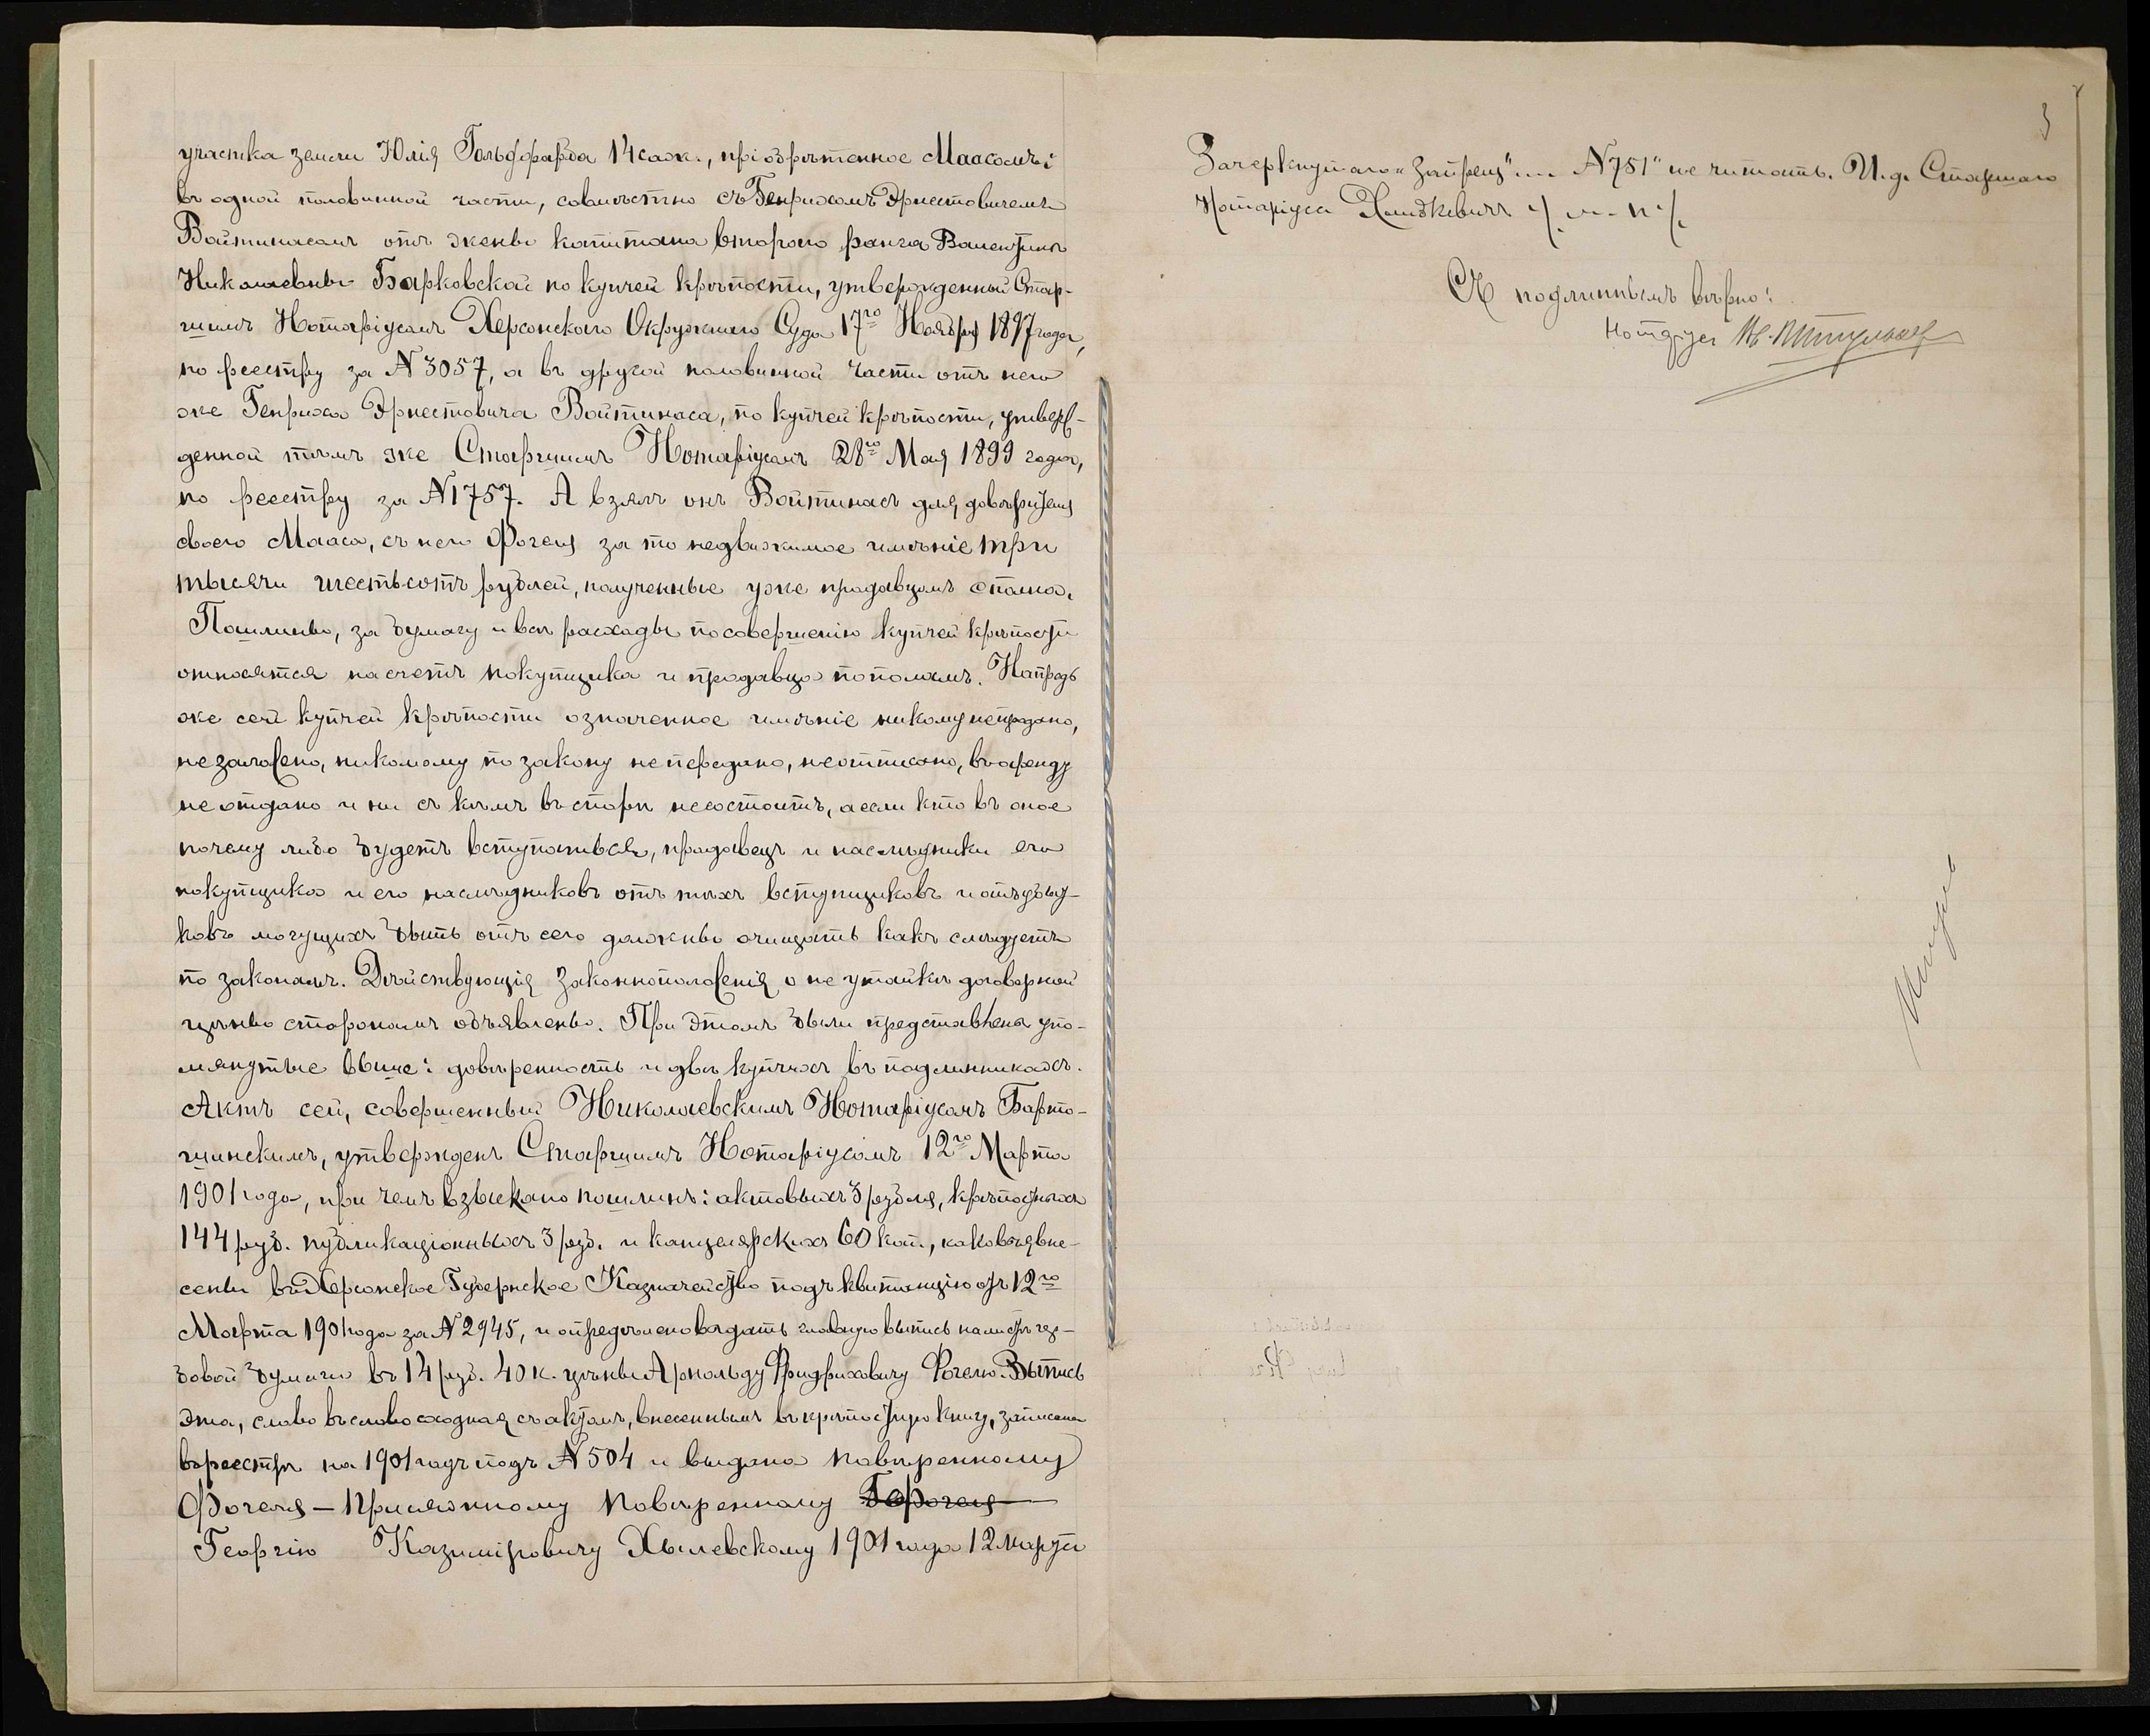 участка земли Юлія Гольдфарба 14 саж., пріобрѣтенное Маасомъ:
въ одной половинной части, совмѣстно съ Генрихомъ Эрнестовичемъ
Войтинасомъ отъ жены капитана второго ранга Валентины
Николаевны Барковской по купчей крѣпости, утвержденный Стар-
шимъ Нотаріусомъ Херсонскаго Окружнаго Суда 17го Ноября 1897 года,
по реестру за № 3057, а въ другой половинной части отъ него
же Генриха Эрнестовича Войтинаса, по купчей крѣпости, утверж-
денной тѣмъ же Старшимъ Нотаріусомъ 28го Мая 1899 года,
по реестру за № 1757. А взялъ онъ Войтинасъ для довѣрителя
своего Мааса, съ него Фогеля за то недвижимое имѣніе три
тысячи шестьсотъ рублей, полученные уже продавцомъ сполна.
Пошлины, за бумагу и всѣ расходы по совершенію купчей крѣпости
относятся на счетъ покупщика и продавца пополамъ. Напредь
же сей купчей крѣпости означенное имѣніе никому не продано,
не заложено, никому по закону не передано, не отписано, въ аренду
не отдано и ни съ кѣмъ въ спорѣ не состоитъ, а если кто въ оное
почему либо будетъ вступаться, продавецъ и наслѣдники его
покупщика и его наслѣдниковъ отъ тѣхъ вступщиковъ и отъ убыт-
ковъ могущихъ быть отъ сего должны очищать какъ слѣдуетъ
по законамъ. Дѣйствующія законноположенія о не утайкѣ договорной
цѣны сторонамъ объявлены. При этомъ были представлены упо-
мянутые выше: довѣренность и двѣ купчихъ въ подлинникахъ.
Актъ сей, совершенный Николаевскимъ Нотаріусомъ Барто-
шинскимъ, утвержденъ Старшимъ Нотаріусомъ 12го Марта
1901 года, при чемъ взыскано пошлинъ: актовыхъ 3 рубля, крѣпостныхъ
144 руб. публикаціонныхъ 3 руб. и канцелярскихъ 60 коп., каковыя вне-
сены въ Херсонское Губернское Казначейство подъ квитанцію отъ 12го
Марта 1901 года за № 2945, и опредѣлено выдать главную выпись на листѣ гер-
бовой бумаги въ 14 руб. 40 к. цѣны Арнольду Фридриховичу Фогелю. Выпись
эта, слово въ слово сходная съ актомъ, внесеннымъ въ крѣпостную книгу, записана
въ реестрѣ на 1901 годъ подъ № 504 и выдана повѣренному
Фогеля — Присяжному Повѣренному
Георгію Казиміровичу Хылевскому 1901 года 12 марта
3
Зачеркнутаго „запрещ“ № 751“ не читать. И. д. Старшаго
Нотаріуса м. п.
Съ подлиннымъ вѣрно:
Нотаріусъ